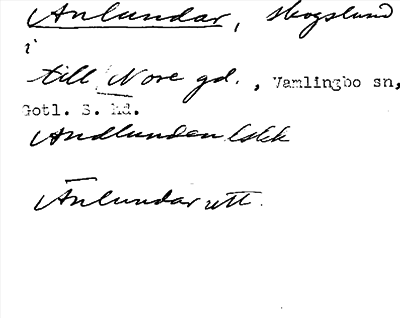 Anlundar, skogslund
i
till Nore gd., Vamlingbo sn,
Gotl. S. hd.
Andlunden Eskk
Ānlundar utt.